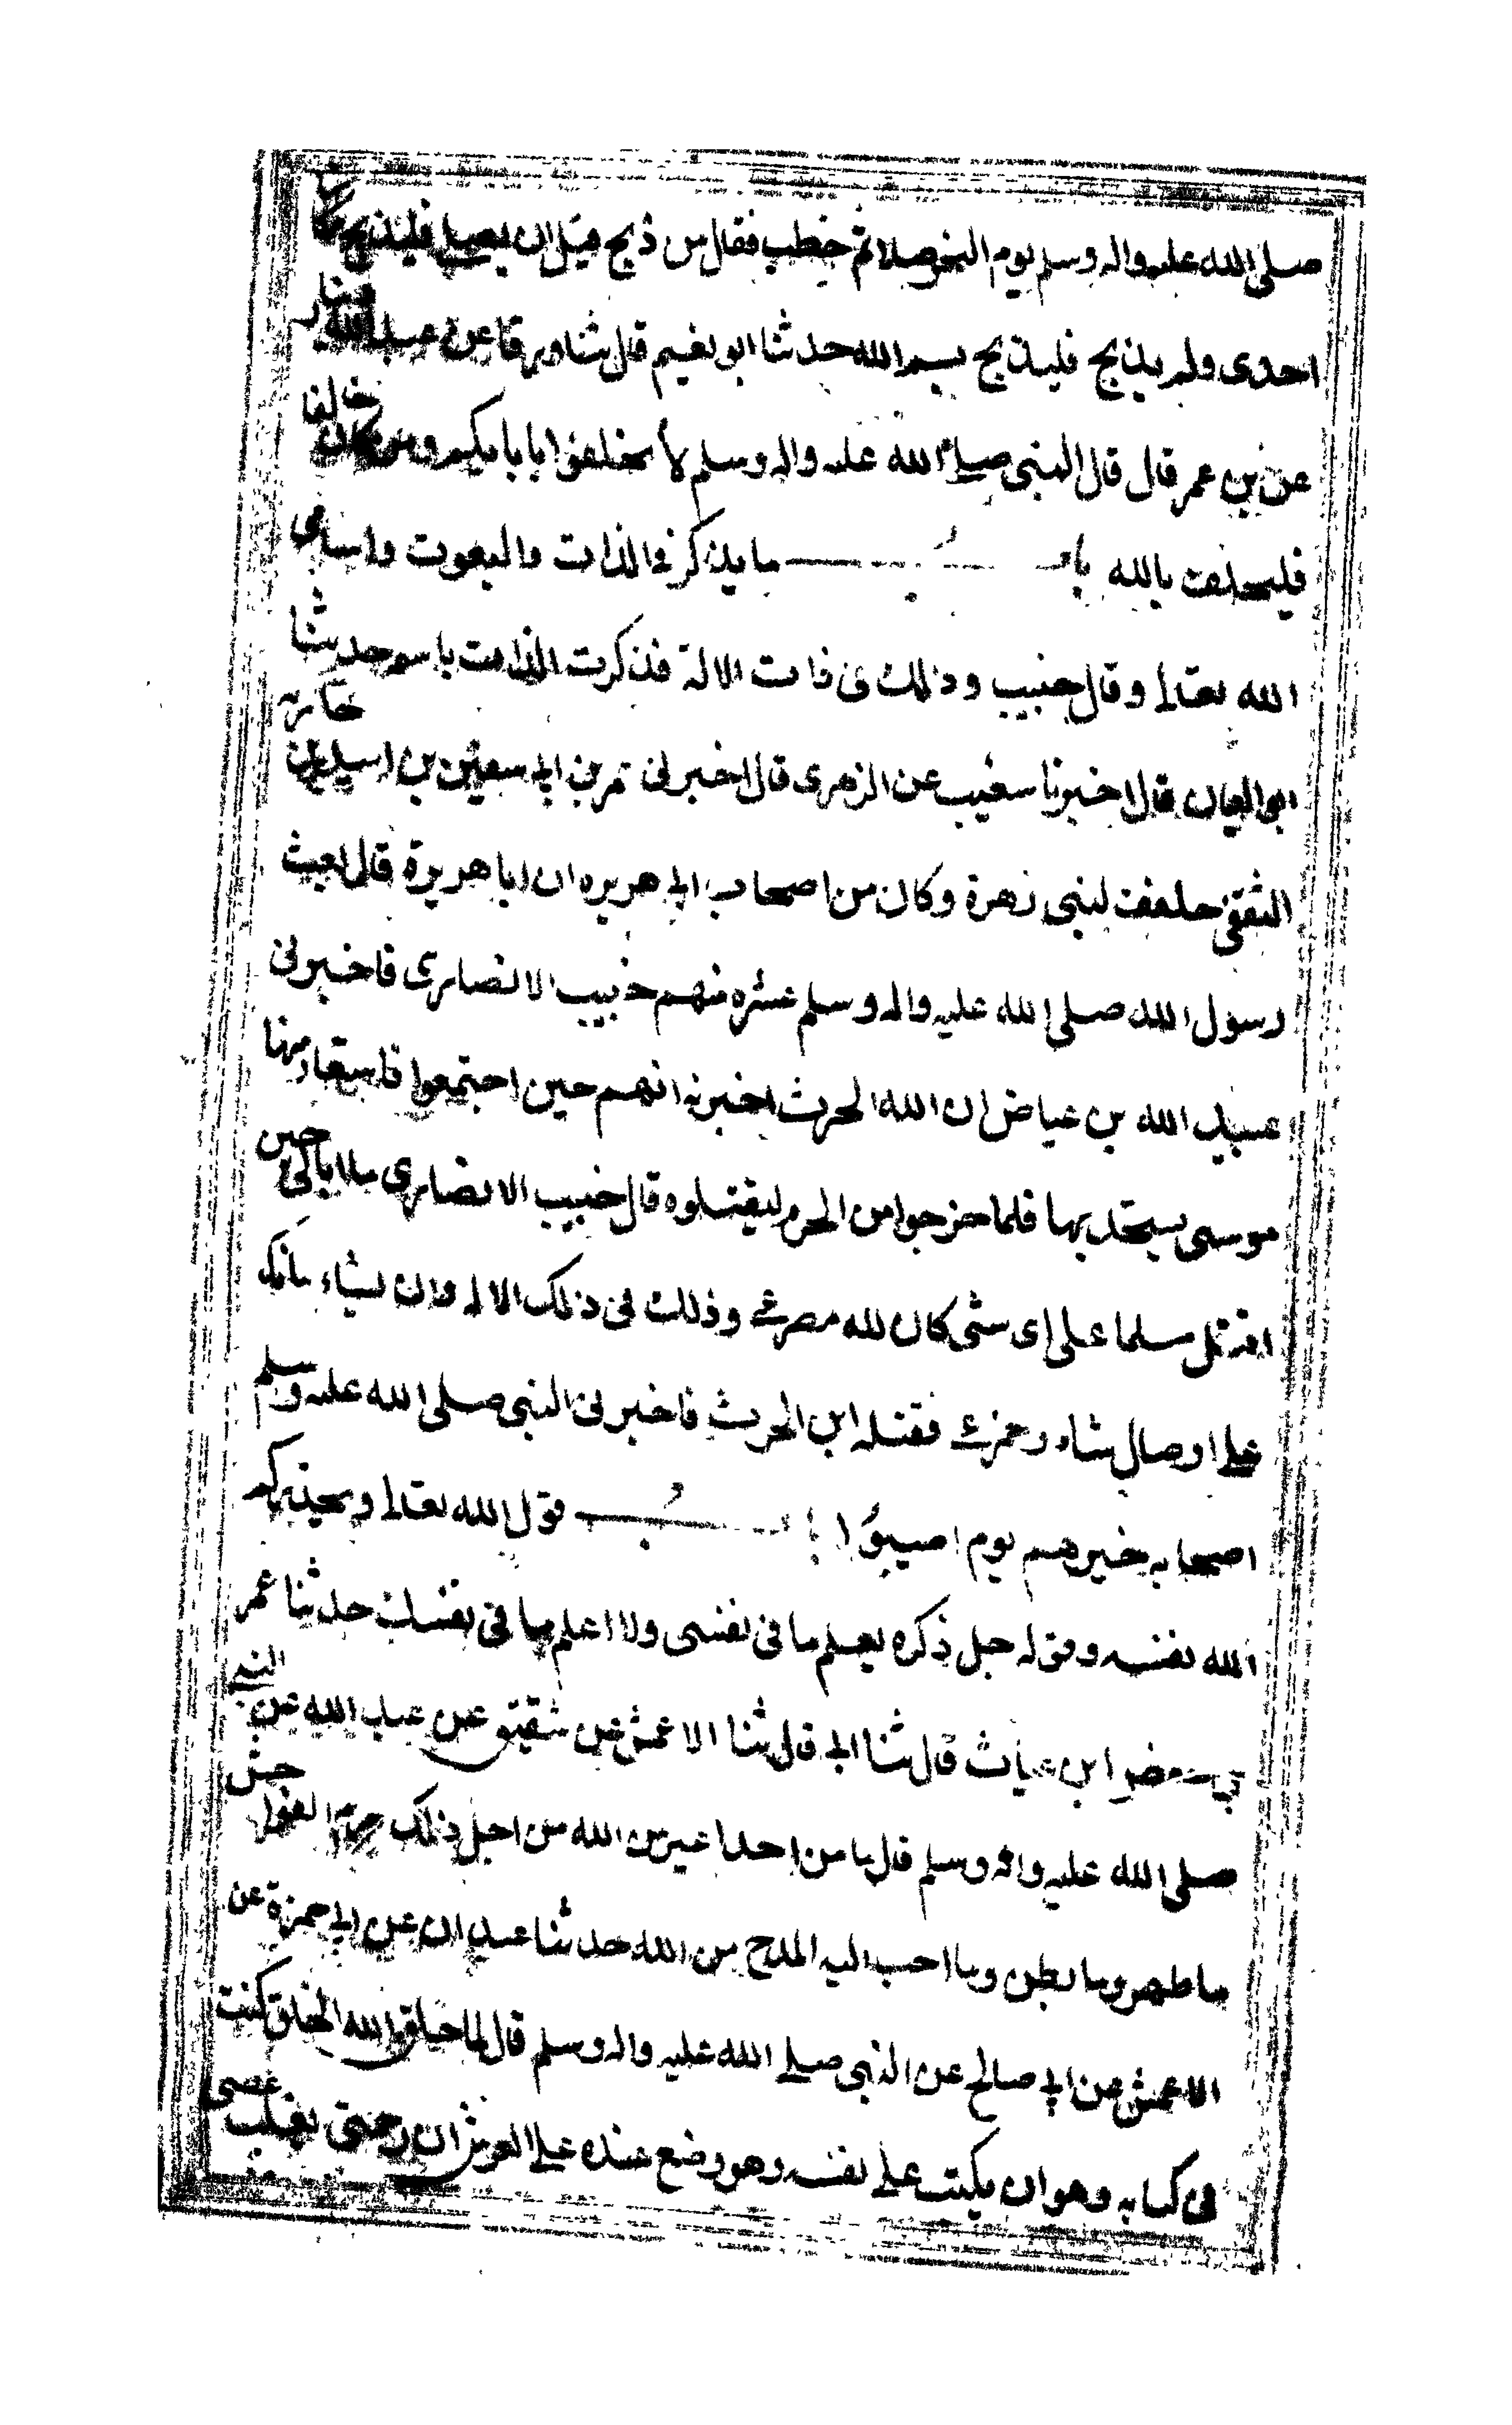 صلى الله عليه واله وسلم يوم النحر صلا ثم خطب فقال من ذبح قبل ان يصلي فليذبح مكانها
احدى ولم يذبح فليذبح بسم الله حدثنا ابو نعيم قال ثنا ورقا عن عبد الله بن دينار
عن بن عمر قال قال النبي صلى الله عليه واله وسلم لا تحلفوا بابايكم ومن كان حالفا
فليحلف بالله باب ما يذكر في الذات والنعوت واسامي
الله تعالى وقال خبيب وذلك في ذات الاله فذكرت الذات باسم حدثنا
ابو اليمان قال اخبرنا شعيب عن الزهري قال اخبرني عمر بن ابي سفين بن اسيد بن جارية
الثقفي حليف لبني زهرة وكان من اصحاب ابي هريره ان ابا هريرة قال بعث
رسول الله صلى الله عليه واله وسلم عشره منهم خبيب الانصاري فاخبرني
عبيد الله بن عياض ان الله الحرث اخبرته انهم حين اجتمعوا فاستعار منها
موسى يستحد بها فلما خرجوا من الحرم ليقتلوه قال خبيب الانصاري ملا ابالي حين
اقتل مسلما على اي شي كان لله مصرعي وذلك في ذلك الاله وان يشاء يبارك
على اوصال شاو وحمزع فقتله ابن الحرث فاخبرني النبي صلى الله عليه وسلم
اصحابه خبرهم يوم اصيبوا باب قول الله تعالى ويحذركم
الله نفسه وقوله جل ذكره يعلم ما في نفسي ولا اعلم ما في نفسك حدثنا عمر
بن حفص ابن غياث قال ثنا ابي قال ثنا الاعمش عن شقيق عن عبد الله عن النبي
صلى الله عليه واله وسلم قال ما من احدا غير من الله من اجل ذلك حرم الفواحش
ما ظهر وما بطن وما احب اليه المدح من الله حدثنا عبدان عن ابي حمزة عن
الاعمش عن ابي صالح عن النبي صلى الله عليه واله وسلم قال لما خلق الله الخلق كتب
في كتابه وهو ان يكتب على نفسه وهو وضع عنده على العرش ان رحمتي تغلب غضبي